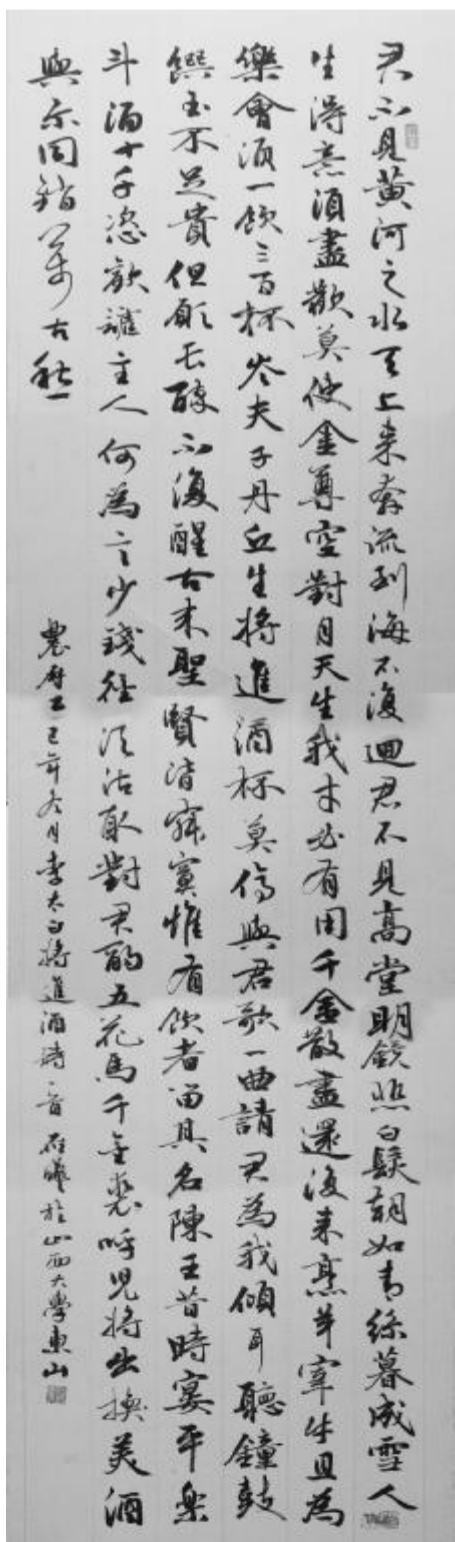 君不見黃河之水天上来奔流到海不復迴君不見高堂明鏡悲白髮朝如青絲暮成雪人
生得意須盡歡莫使金尊空對月天生我才必有用千金散盡還復来烹羊宰牛且為
樂會須一飲三百杯岑夫子丹丘生將進酒杯莫停與君歌一曲請君為我傾耳聽鐘鼓
饌玉不足貴但願長醉不復醒古来聖賢皆寂寞惟有飲者留其名陳王昔時宴平樂
斗酒十千恣歡謔主人何為言少錢徑須沽取對君酌五花馬千金裘呼兒將出換美酒
與尔同銷萬古愁
農曆乙巳年冬月李太白將進酒詩一首 於山西大學東山